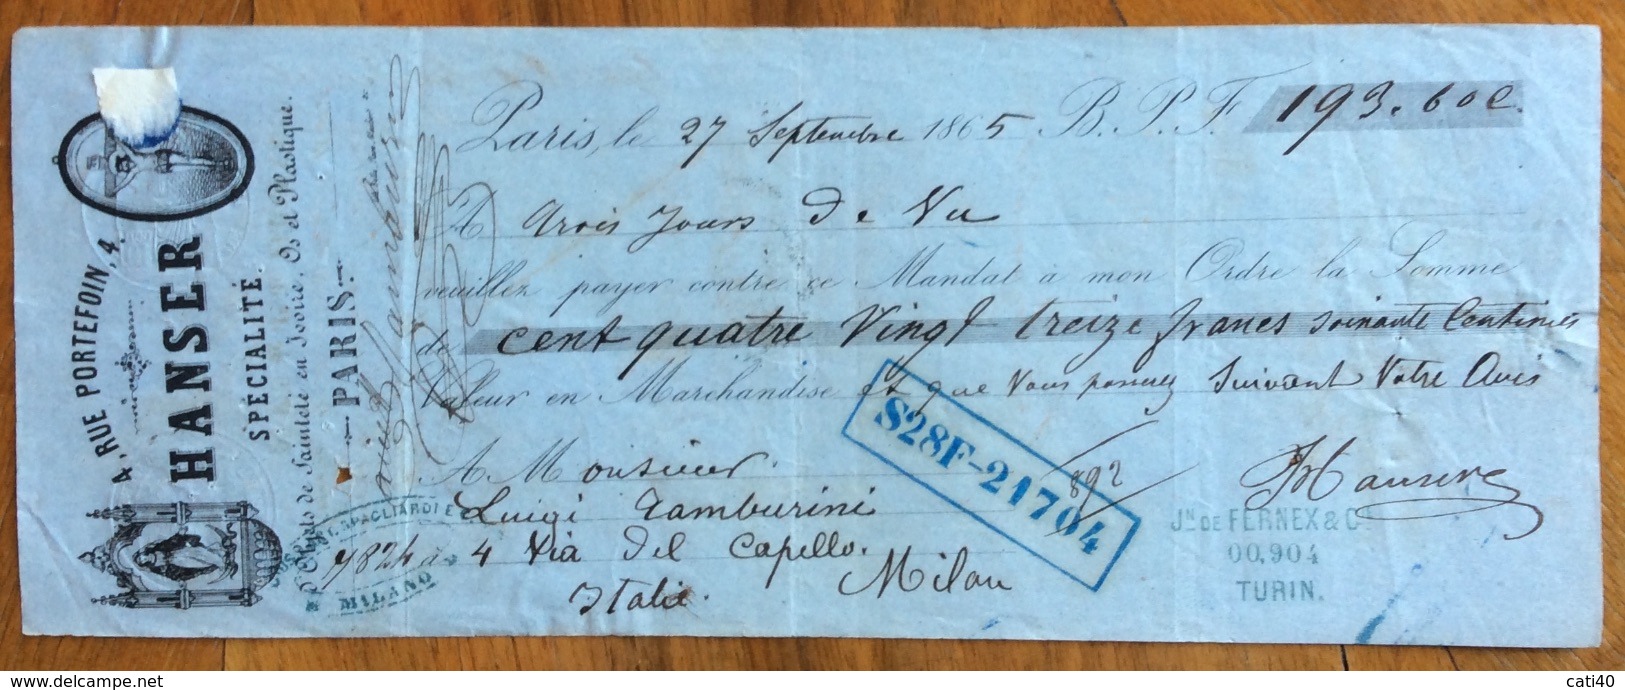 4, RUE PORTEFOIN, 4.
HANSER
SPÉCIALITÉ
d'Objets de Sainteté en Ivoire, Os et Plastique.
PARIS
Paris, le 27 Septembre 1865 B. P. F. 193.60c.
A trois Jours de Vue
veuillez payer contre ce Mandat à mon Ordre la Somme
de cent quatre Vingt treize francs soixante Centimes
Valeur en Marchandise et que Vous passerez Suivant Votre Avis
A Monsieur
Luigi Tamburini
4 Via del Capello.
Milan
Italie.
892
S28F-21704
Hanser
JN DE FERNEX & CIE
00,904
TURIN.
7824
MILANO
cartolina-e-marcatovici.delcampe.net